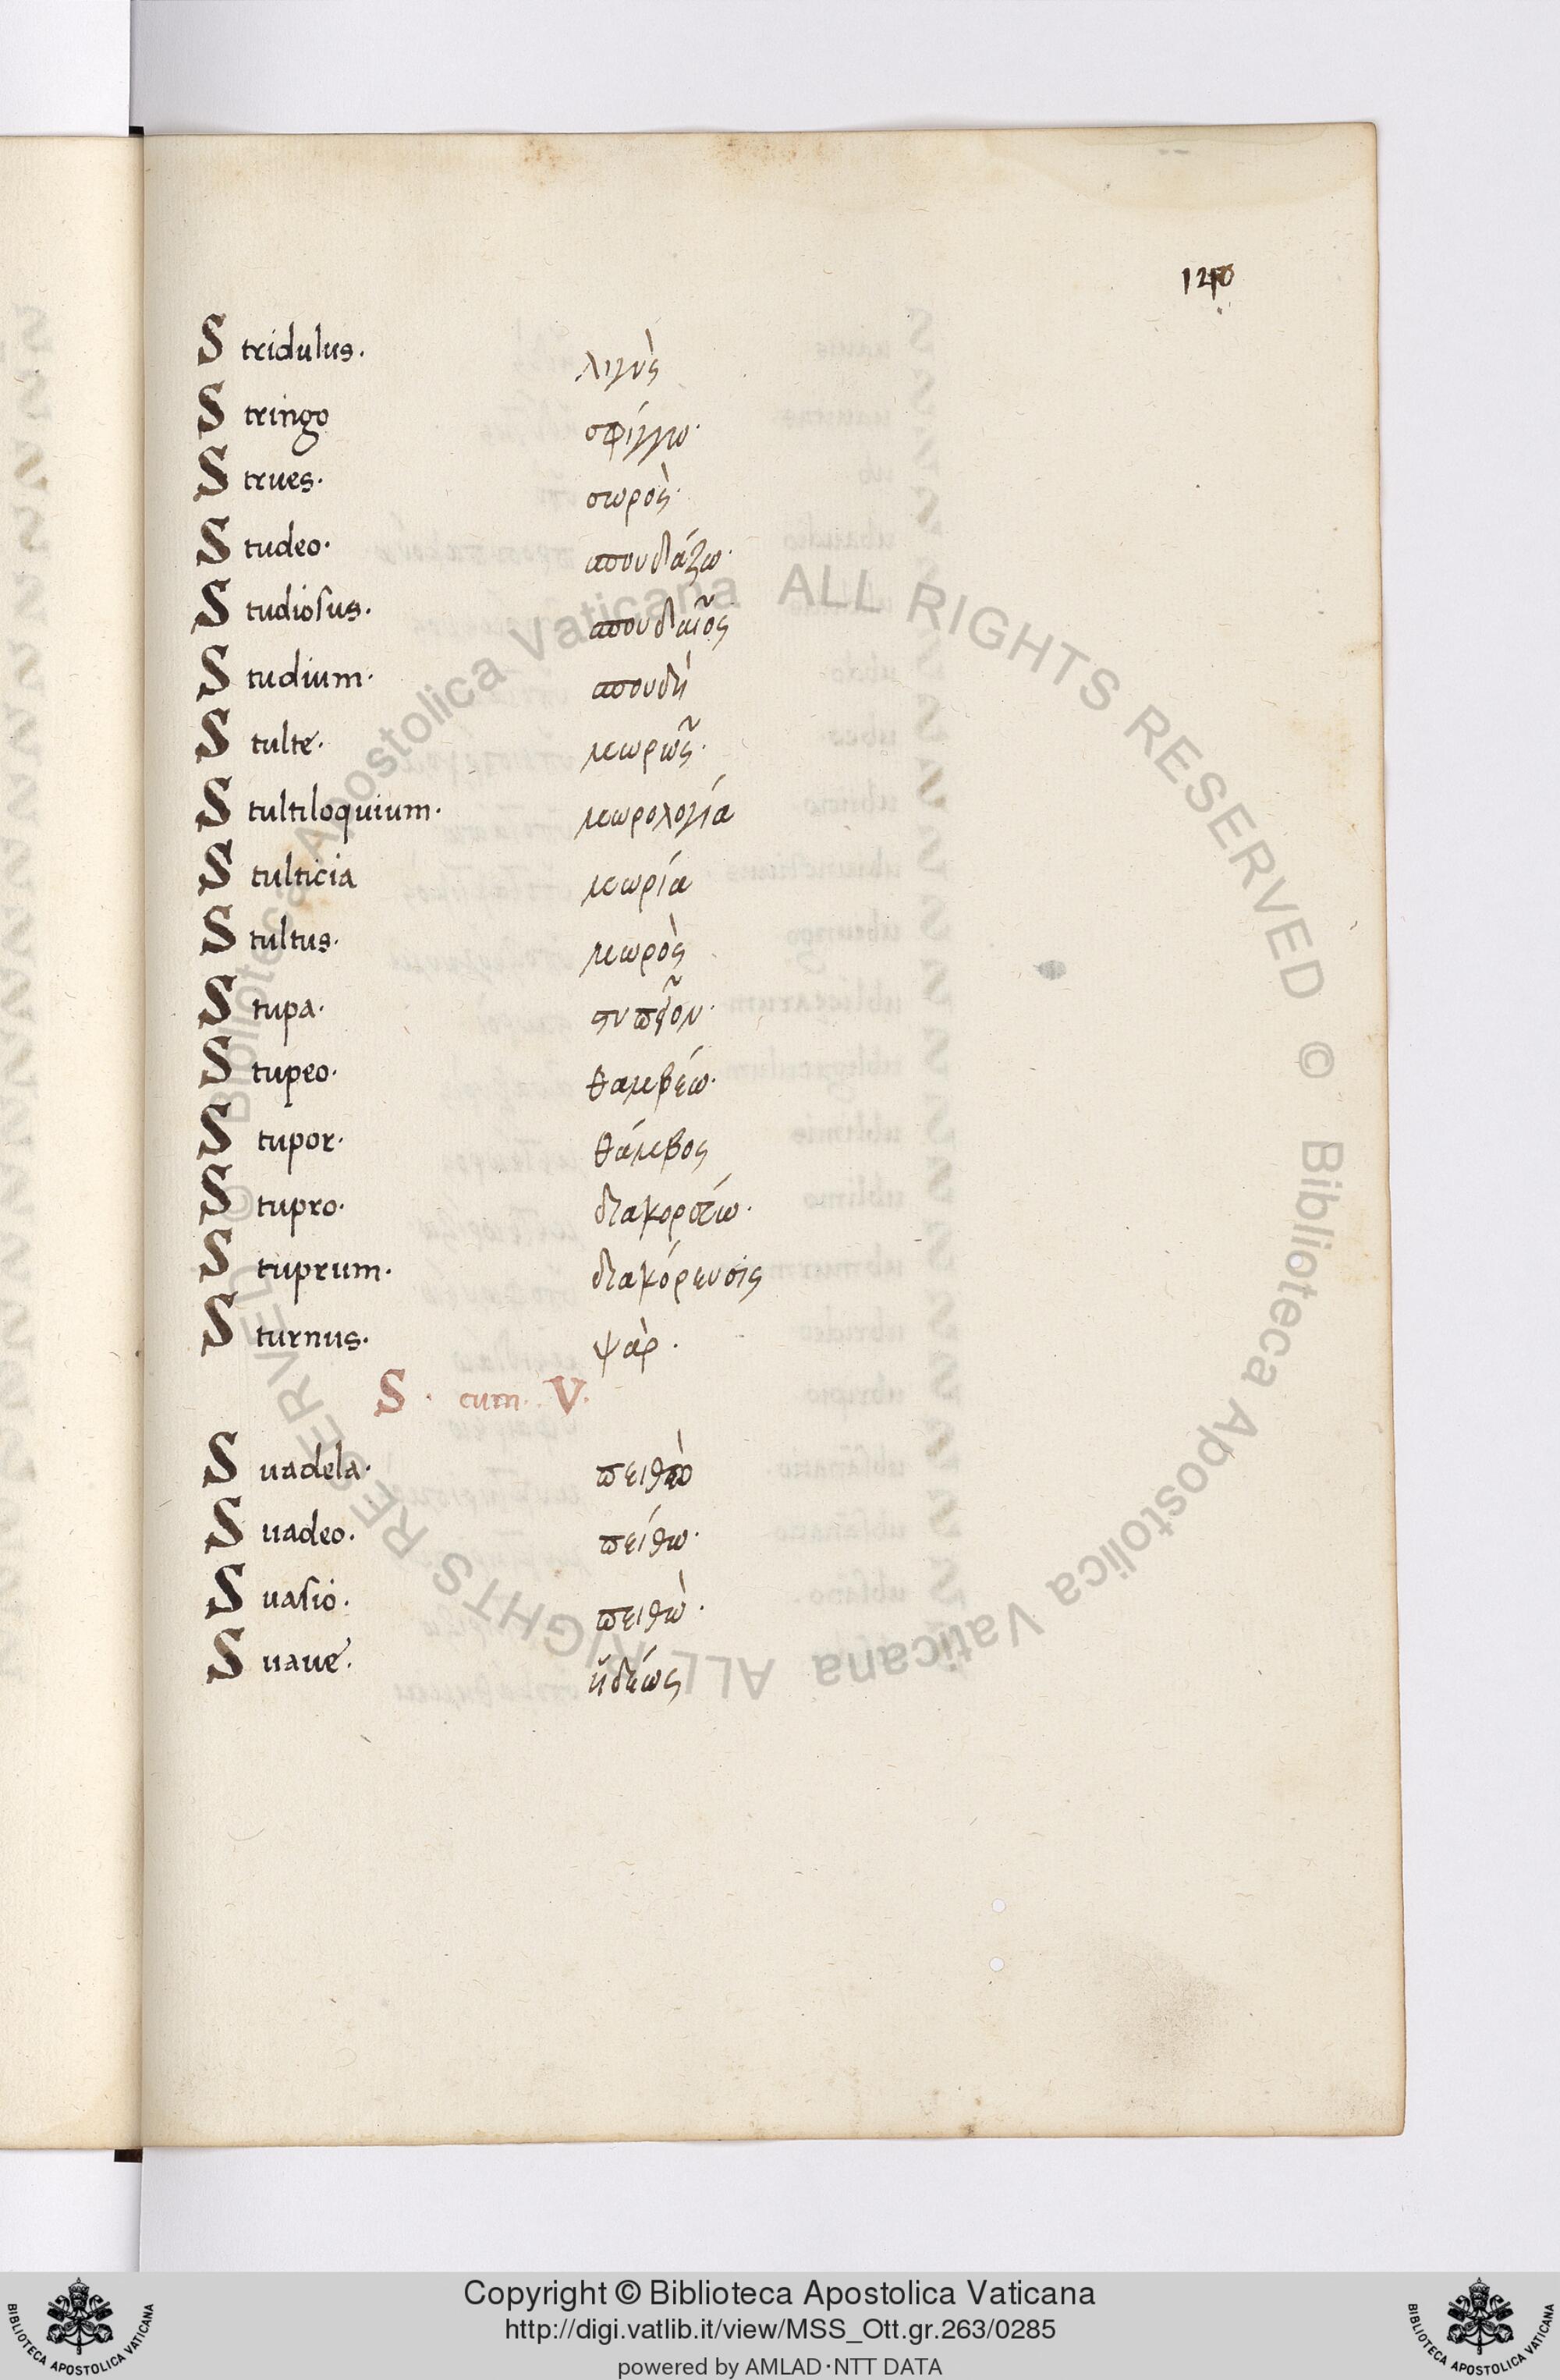 Stridulus. λιγὺς
Stringo σφίγγω·
Strues. σωρὸς·
Studeo. σπουδάζω·
Studiosus. σπουδαῖος
Studium. σπουδὴ
Stulte. μωρῶς·
Stultiloquium. μωρολογία
Stulticia μωρία
Stultus. μωρὸς
Stupa.
Stupeo. θαμβέω·
Stupor. θάμβος
Stupro.
Stuprum. διακόρευσις
Sturnus. ψὰρ.
S. cum. V.
Suadela. πειθὼ
Suadeo. πείθω·
Suasio. πειθὼ·
Suaue. ἡδέως
Copyright © Biblioteca Apostolica Vaticana
http://digi.vatlib.it/view/MSS_Ott.gr.263/0285
powered by AMLAD·NTT DATA
BIBLIOTECA APOSTOLICA VATICANA
BIBLIOTECA APOSTOLICA VATICANA
© Biblioteca Apostolica Vaticana ALL RIGHTS RESERVED © Biblioteca Apostolica Vaticana ALL RIGHTS RESERVED